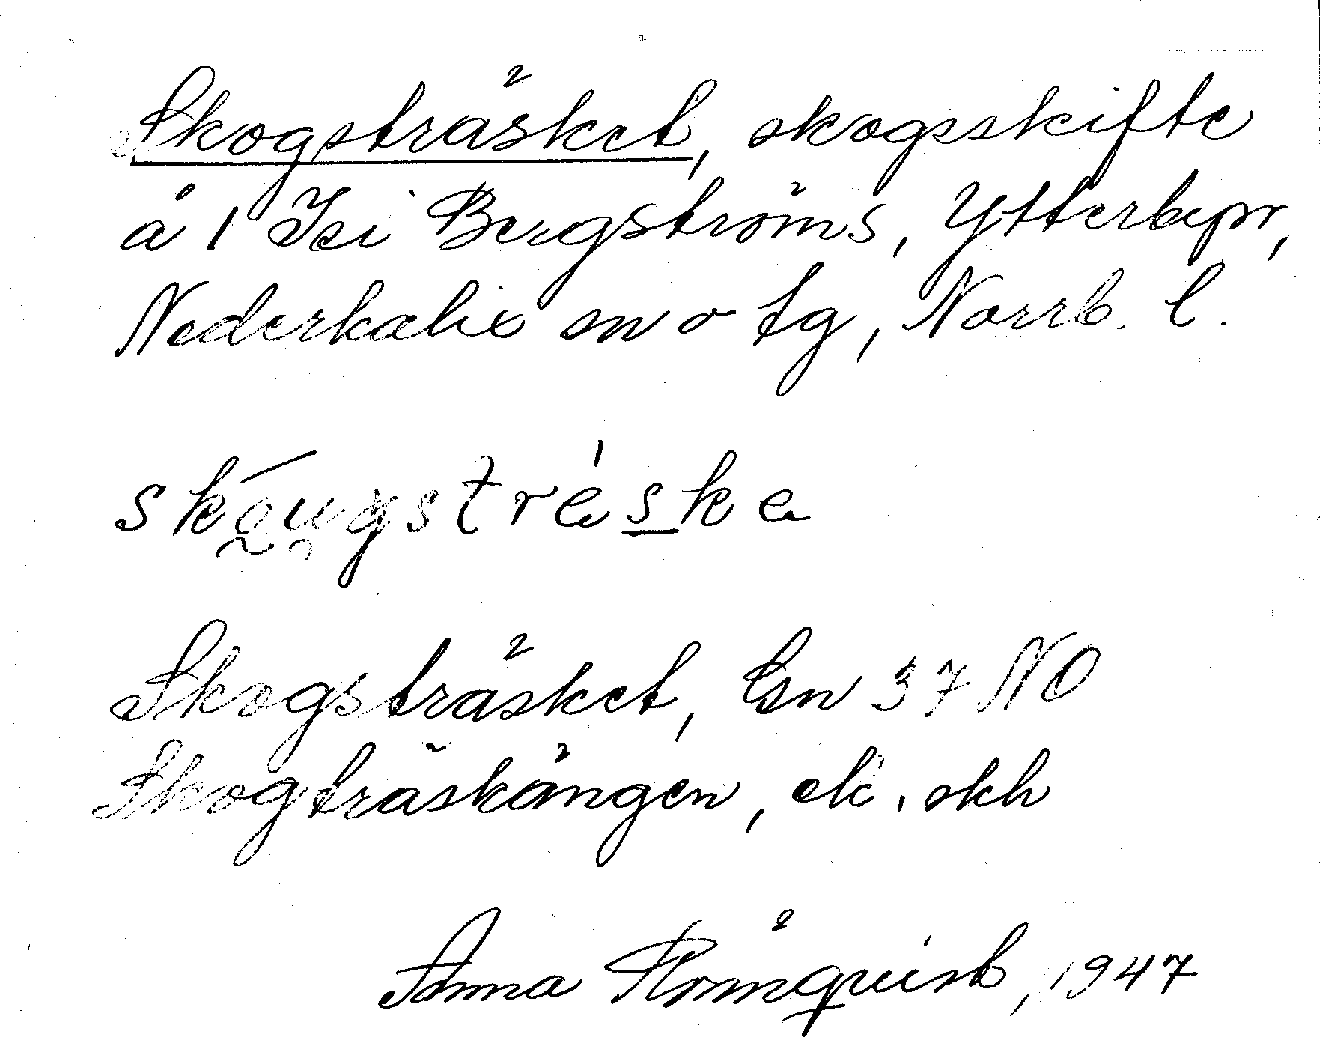 Skogsträsket, skogsskifte
å 1 Isi Bergströms, Ytterbyn,
Nederkalix sn o tg, Norrb. l.
skǫugstrèska
Skogsträsket, Gn 37 NO
Skogträskängen, ek. skh
Anna Rönnquist, 1947